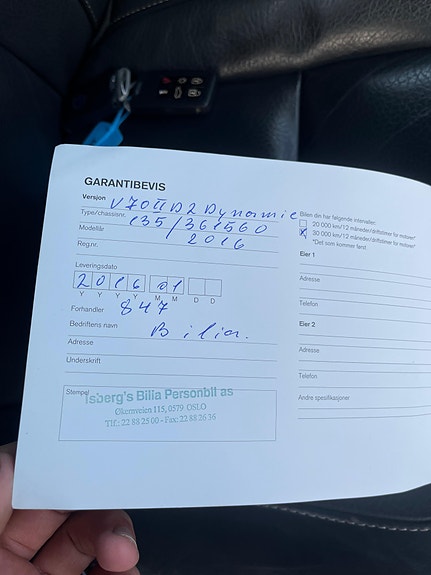 GARANTIBEVIS
Versjon V70 II D2 Dynamic
Type/chassisnr. 135/361560
Modellår 2016
Reg.nr.
Leveringsdato
2016 01
Y Y Y Y M M D D
Forhandler 847
Bedriftens navn Bilia.
Adresse
Underskrift
Stempel
Isberg's Bilia Personbil as
Økernveien 115, 0579 OSLO
Tlf.: 22 88 25 00 - Fax: 22 88 26 36
Bilen din har følgende intervaller:
20 000 km/12 måneder/driftstimer for motoren*
X 30 000 km/12 måneder/driftstimer for motoren*
*Det som kommer først
Eier 1
Adresse
Telefon
Eier 2
Adresse
Telefon
Andre spesifikasjoner